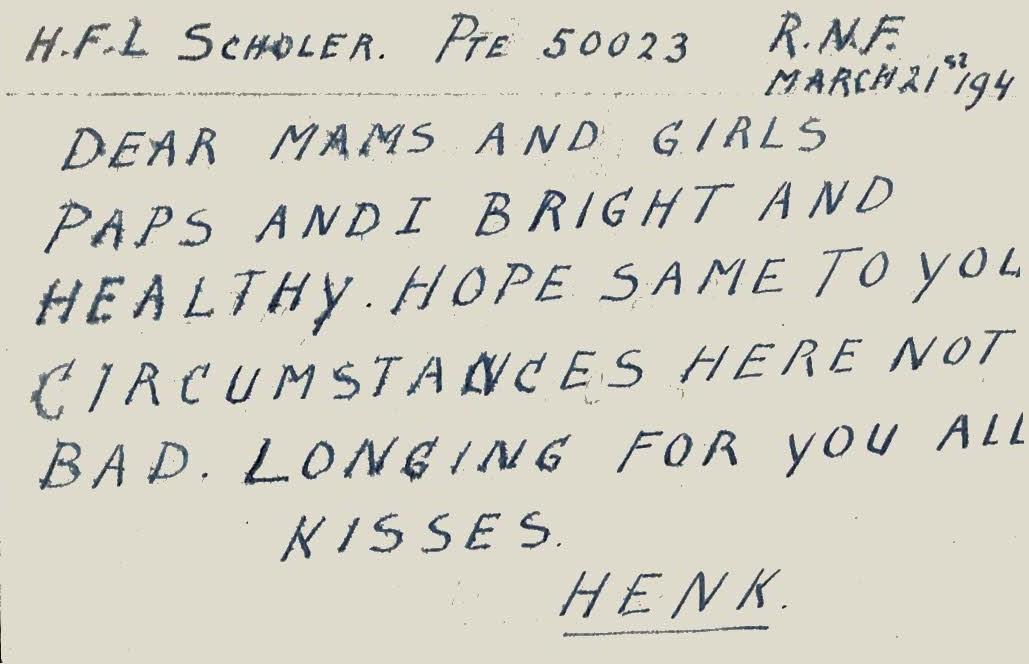 H.F.L SCHOLER. PTE 50023 R.N.F.
MARCH 21st 194
DEAR MAMS AND GIRLS
PAPS AND I BRIGHT AND
HEALTHY. HOPE SAME TO YOU
CIRCUMSTANCES HERE NOT
BAD. LONGING FOR YOU ALL
KISSES.
HENK.